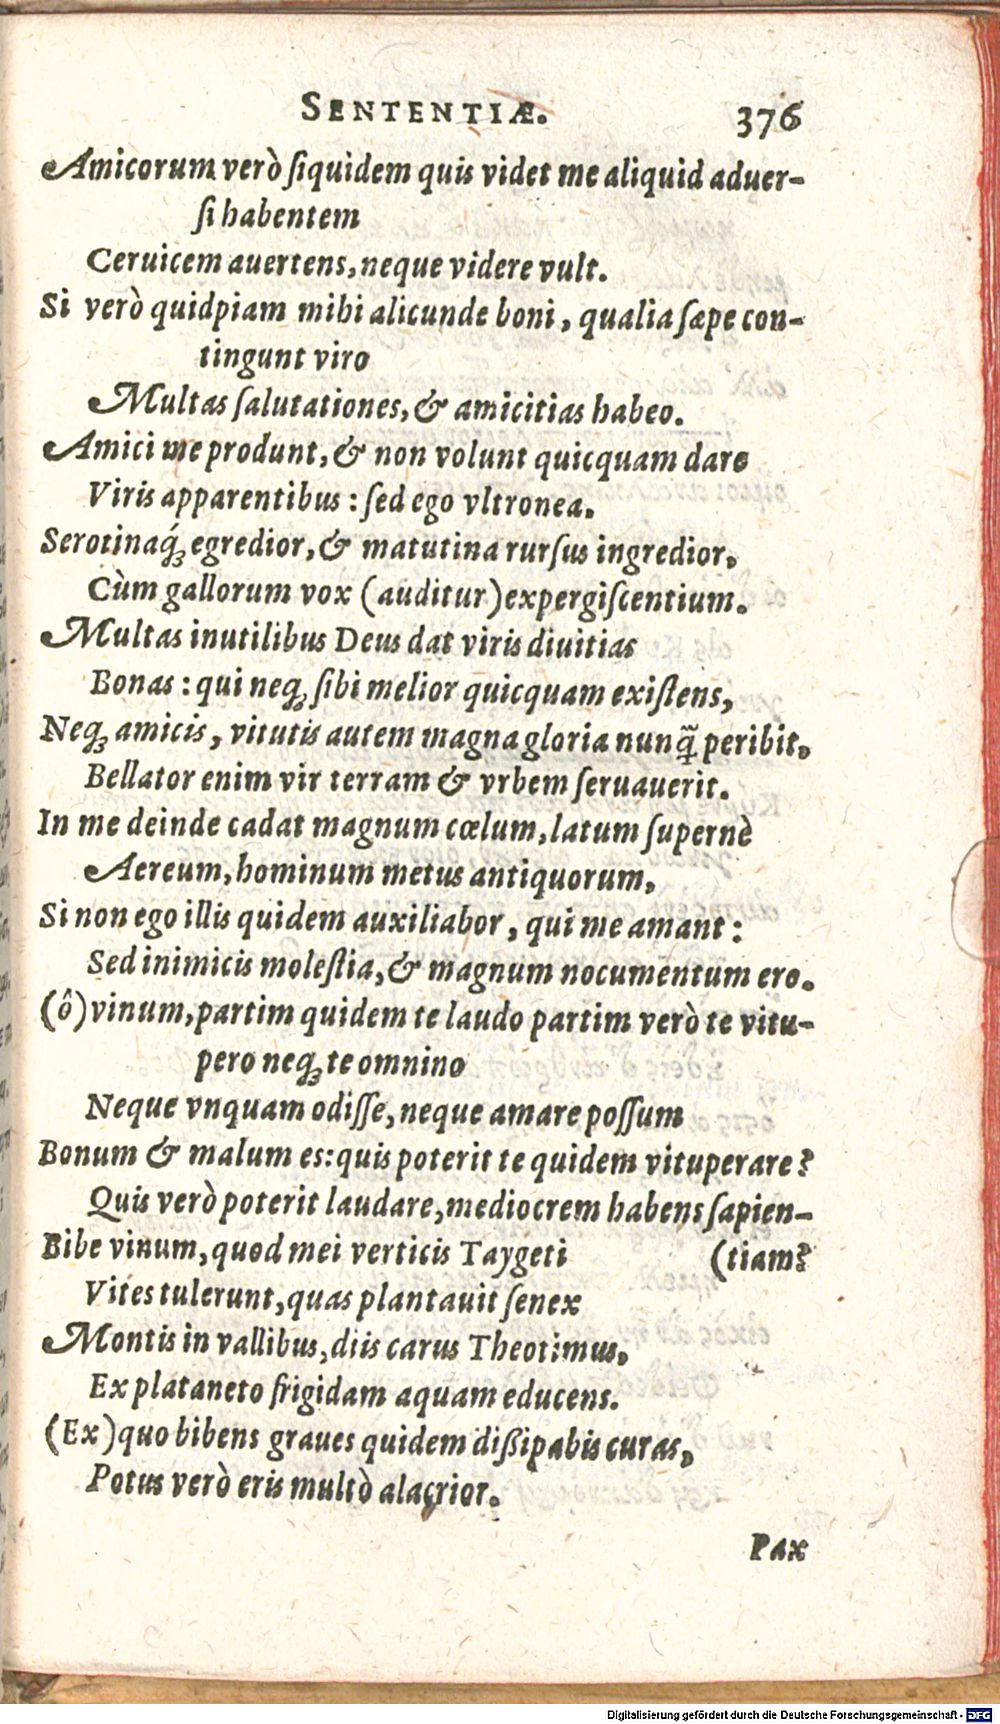 SENTENTIÆ. 376
Amicorum verò ſiquidem quis videt me aliquid aduer-
ſi habentem
Ceruicem auertens, neque videre vult.
Si verò quidpiam mihi alicunde boni, qualia ſæpe con-
tingunt viro
Multas ſalutationes, & amicitias habeo.
Amici me produnt, & non volunt quicquam dare
Viris apparentibus: ſed ego vltronea.
Serotinaq́; egredior, & matutina rurſus ingredior,
Cùm gallorum vox (auditur) expergiſcentium.
Multas inutilibus Deus dat viris diuitias
Bonas: qui neq; ſibi melior quicquam exiſtens,
Neq; amicis, vitutis autem magna gloria nunq̃ peribit,
Bellator enim vir terram & vrbem ſeruauerit.
In me deinde cadat magnum cœlum, latum ſupernè
Aereum, hominum metus antiquorum,
Si non ego illis quidem auxiliabor, qui me amant:
Sed inimicis moleſtia, & magnum nocumentum ero.
(ô) vinum, partim quidem te laudo partim verò te vitu-
pero neq; te omnino
Neque vnquam odiſſe, neque amare poſſum
Bonum & malum es: quis poterit te quidem vituperare?
Quis verò poterit laudare, mediocrem habens ſapien-
Bibe vinum, quod mei verticis Taygeti (tiam?
Vites tulerunt, quas plantauit ſenex
Montis in vallibus, diis carus Theotimus,
Ex plataneto frigidam aquam educens.
(Ex) quo bibens graues quidem diſſipabis curas,
Potus verò eris multò alacrior.
Pax
Digitalisierung gefördert durch die Deutsche Forschungsgemeinschaft - DFG